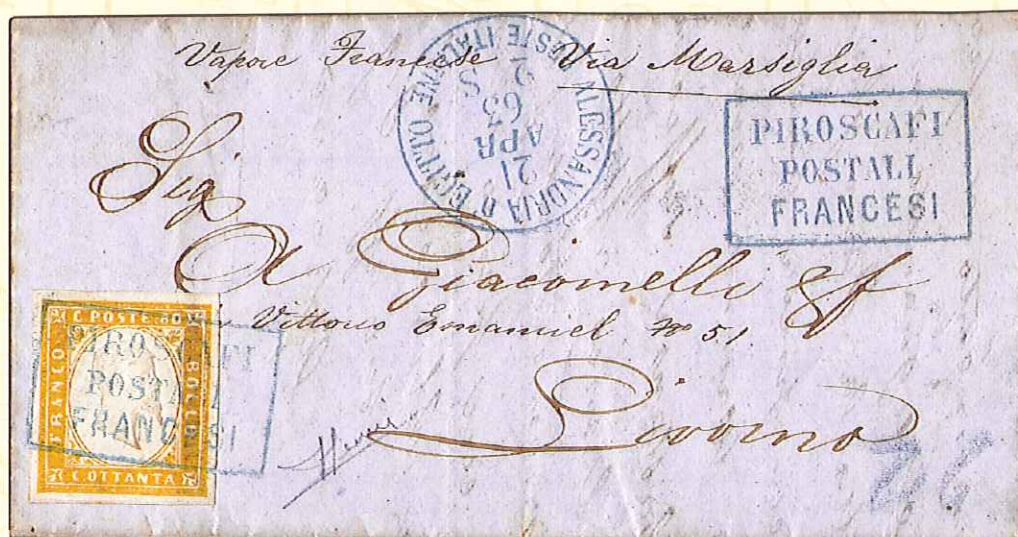 Vapore Francese Via Marsiglia
ALESSANDRIA D'EGITTO POSTE ITALIANE
21
APR
63
2 S
PIROSCAFI
POSTALI
FRANCESI
Sig
A Giacomelli & f
Vittorio Emanuel No 51
Livorno
C POSTE 80
FRANCO
BOLLO
C. OTTANTA
PIROSCAFI
POSTALI
FRANCESI